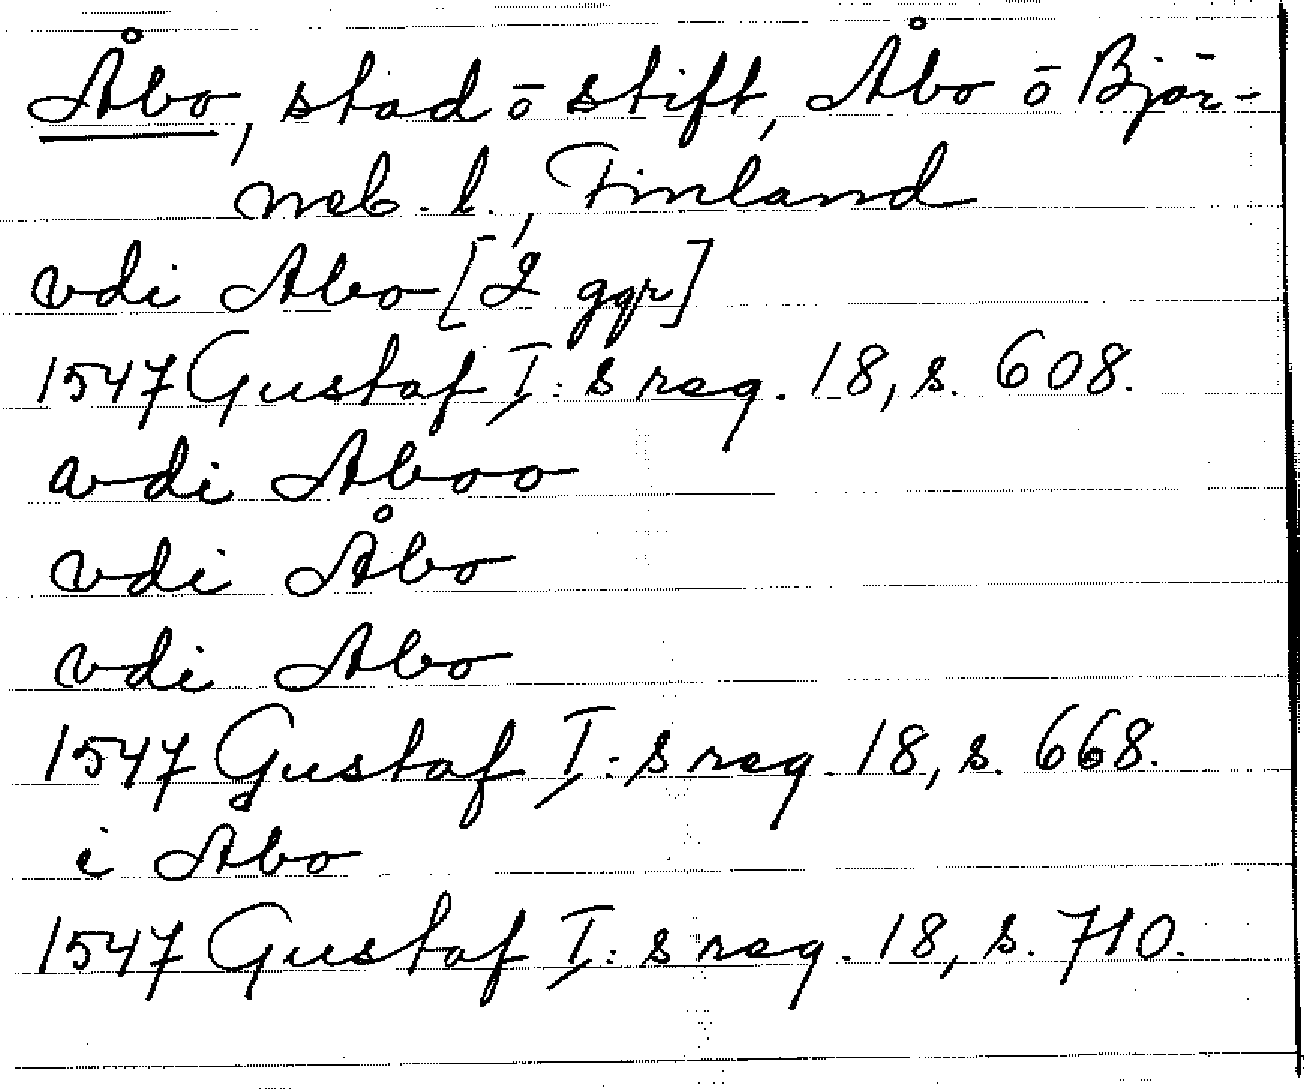 Åbo, stad o stift, Åbo o Björ-
neb. l., Finland
vdi Abo [2 ggr]
1547 Gustaf I:s reg. 18, s. 608.
vdi Aboo
vdi Åbo
vdi Abo
1547 Gustaf I:s reg. 18, s. 668.
i Åbo
1547 Gustaf I:s reg. 18, s. 710.